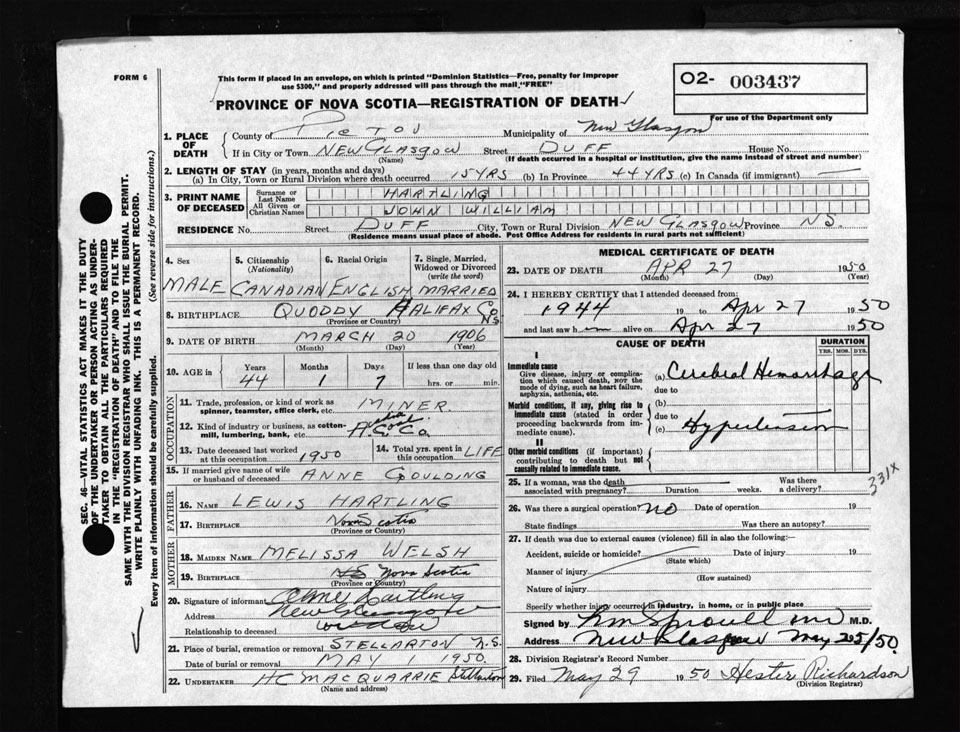 FORM 6
This form if placed in an envelope, on which is printed "Dominion Statistics—Free, penalty for improper
use $300," and properly addressed will pass through the mail "FREE"
PROVINCE OF NOVA SCOTIA—REGISTRATION OF DEATH
O2- 003437
For use of the Department only
1. PLACE OF DEATH
County of PICTOU Municipality of New Glasgow
If in City or Town NEW GLASGOW Street DUFF House No.
(Name) (If death occurred in a hospital or institution, give the name instead of street and number)
2. LENGTH OF STAY (in years, months and days)
(a) In City, Town or Rural Division where death occurred 15 YRS (b) In Province 44 YRS (c) In Canada (if immigrant) —
3. PRINT NAME OF DECEASED
Surname or Last Name HARTLING
All Given or Christian Names JOHN WILLIAM
RESIDENCE No. Street DUFF City, Town or Rural Division NEW GLASGOW Province N.S.
(Residence means usual place of abode. Post Office Address for residents in rural parts not sufficient)
4. Sex MALE
5. Citizenship (Nationality) CANADIAN
6. Racial Origin ENGLISH
7. Single, Married, Widowed or Divorced (write the word) MARRIED
8. BIRTHPLACE QUODDY HALIFAX Co N.S.
(Province or Country)
9. DATE OF BIRTH MARCH 20 1906
(Month) (Day) (Year)
10. AGE in Years Months Days If less than one day old
44 1 7 hrs. or min.
OCCUPATION
11. Trade, profession, or kind of work as
spinner, teamster, office clerk, etc. MINER.
12. Kind of industry or business, as cotton-
mill, lumbering, bank, etc. Acadia Coal Co.
13. Date deceased last worked at this occupation 1950
14. Total yrs. spent in this occupation LIFE
15. If married give name of wife
or husband of deceased ANNE GOULDING
FATHER
16. NAME LEWIS HARTLING
17. BIRTHPLACE Nova Scotia
MOTHER
18. MAIDEN NAME MELISSA WELSH
19. BIRTHPLACE NS Nova Scotia
(Province or Country)
20. Signature of informant Anne Hartling
Address New Glasgow
Relationship to deceased widow
21. Place of burial, cremation or removal STELLARTON N.S.
Date of burial or removal MAY 1 1950.
22. UNDERTAKER HC MACQUARRIE Stellarton
(Name and address)
MEDICAL CERTIFICATE OF DEATH
23. DATE OF DEATH APR 27 1950
(Month) (Day) (Year)
24. I HEREBY CERTIFY that I attended deceased from:
1944 19 to Apr 27 1950
and last saw h im alive on Apr 27 1950
CAUSE OF DEATH
DURATION
YRS. MOS. DYS.
I
Immediate cause
Give disease, injury or complica-
tion which caused death, not the
mode of dying, such as heart failure,
asphyxia, asthenia, etc.
(a) Cerebral Hemorrhage
due to
Morbid conditions, if any, giving rise to
immediate cause (stated in order
proceeding backwards from im-
mediate cause).
(b)
due to
(c) Hypertension
II
Other morbid conditions (if important)
contributing to death but not
causally related to immediate cause.
331X
25. If a woman, was the death
associated with pregnancy? Duration weeks. Was there a delivery?
26. Was there a surgical operation? NO Date of operation 19
State findings Was there an autopsy?
27. If death was due to external causes (violence) fill in also the following:—
Accident, suicide or homicide? Date of injury 19
(State which)
Manner of injury
(How sustained)
Nature of injury
Specify whether injury occurred in industry, in home, or in public place
Signed by M.D.
Address New Glasgow May 25/50.
28. Division Registrar's Record Number
29. Filed May 29 1950 Hester Richardson
(Division Registrar)
SEC. 46—VITAL STATISTICS ACT MAKES IT THE DUTY
OF THE UNDERTAKER OR PERSON ACTING AS UNDER-
TAKER TO OBTAIN ALL THE PARTICULARS REQUIRED
IN THE "REGISTRATION OF DEATH" AND TO FILE THE
SAME WITH THE DIVISION REGISTRAR WHO SHALL ISSUE THE BURIAL PERMIT.
WRITE PLAINLY WITH UNFADING INK. THIS IS A PERMANENT RECORD.
Every item of information should be carefully supplied. (See reverse side for instructions.)